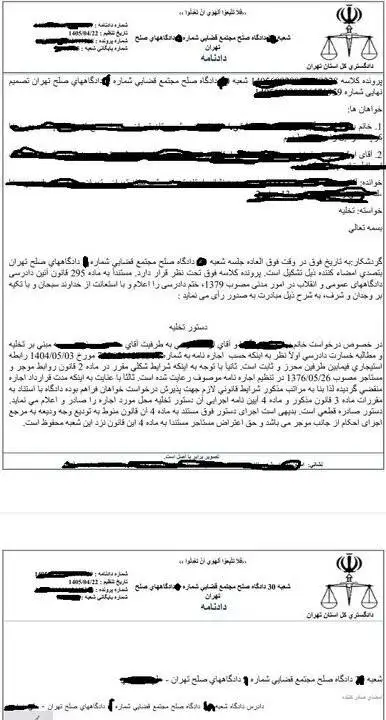 ,,فلا تتبعوا الهوي أن تعدلوا ,,
شماره دادنامه :
تاریخ تنظیم : 1405/04/22
شماره پرونده :
شماره بایگانی شعبه :
شعبه دادگاه صلح مجتمع قضایی شماره دادگاههای صلح
تهران
دادنامه
دادگستری کل استان تهران
پرونده کلاسه شعبه دادگاه صلح مجتمع قضایی شماره دادگاههای صلح تهران تصمیم
نهایی شماره
خواهان ها:
1. خانم
2. آقای
خوانده:
خواسته: تخلیه
بسمه تعالی
گردشکار:به تاریخ فوق در وقت فوق العاده جلسه شعبه دادگاه صلح مجتمع قضایی شماره دادگاههای صلح تهران
بتصدی امضاء کننده ذیل تشکیل است. پرونده کلاسه فوق تحت نظر قرار دارد. مستنداً به ماده 295 قانون آئین دادرسی
دادگاههای عمومی و انقلاب در امور مدنی مصوب 1379، ختم دادرسی را اعلام و با استعانت از خداوند سبحان و با تکیه
بر وجدان و شرف، به شرح ذیل مبادرت به صدور رأی می نماید :
دستور تخلیه
در خصوص درخواست خانم و آقای به طرفیت آقای مبنی بر تخلیه
و مطالبه خسارت دادرسی اولاً نظر به اینکه حسب اجاره نامه به شماره مورخ 1404/05/03 رابطه
استیجاری فیمابین طرفین محرز و ثابت است. ثانیاً با توجه به اینکه شرایط شکلی مقرر در ماده 2 قانون روابط موجر و
مستاجر مصوب 1376/05/26 در تنظیم اجاره نامه موصوف رعایت شده است. ثالثاً با عنایت به اینکه مدت قرارداد اجاره
منقضی گردیده لذا بنا به مراتب مذکور شرایط قانونی لازم جهت پذیرش درخواست خواهان فراهم بوده دادگاه با استناد به
مقررات ماده 3 قانون مذکور و ماده 4 آیین نامه اجرایی آن دستور تخلیه محل مورد اجاره را صادر و اعلام می نماید.
دستور صادره قطعی است. بدیهی است اجرای دستور فوق مستند به ماده 4 آن قانون منوط به تودیع وجه ودیعه به مرجع
اجرای احکام از جانب موجر می باشد و حق اعتراض مستاجر مستندا به ماده 4 این قانون نزد این شعبه محفوظ است.
تصویر برابر با اصل است.
نشانی:
,,فلا تتبعوا الهوي أن تعدلوا ,,
شماره دادنامه :
تاریخ تنظیم : 1405/04/22
شماره پرونده :
شماره بایگانی شعبه :
شعبه 30 دادگاه صلح مجتمع قضایی شماره دادگاههای صلح
تهران
دادنامه
دادگستری کل استان تهران
شعبه دادگاه صلح مجتمع قضایی شماره دادگاههای صلح تهران -
امضای صادر کننده
دادرس دادگاه شعبه دادگاه صلح مجتمع قضایی شماره دادگاههای صلح تهران -